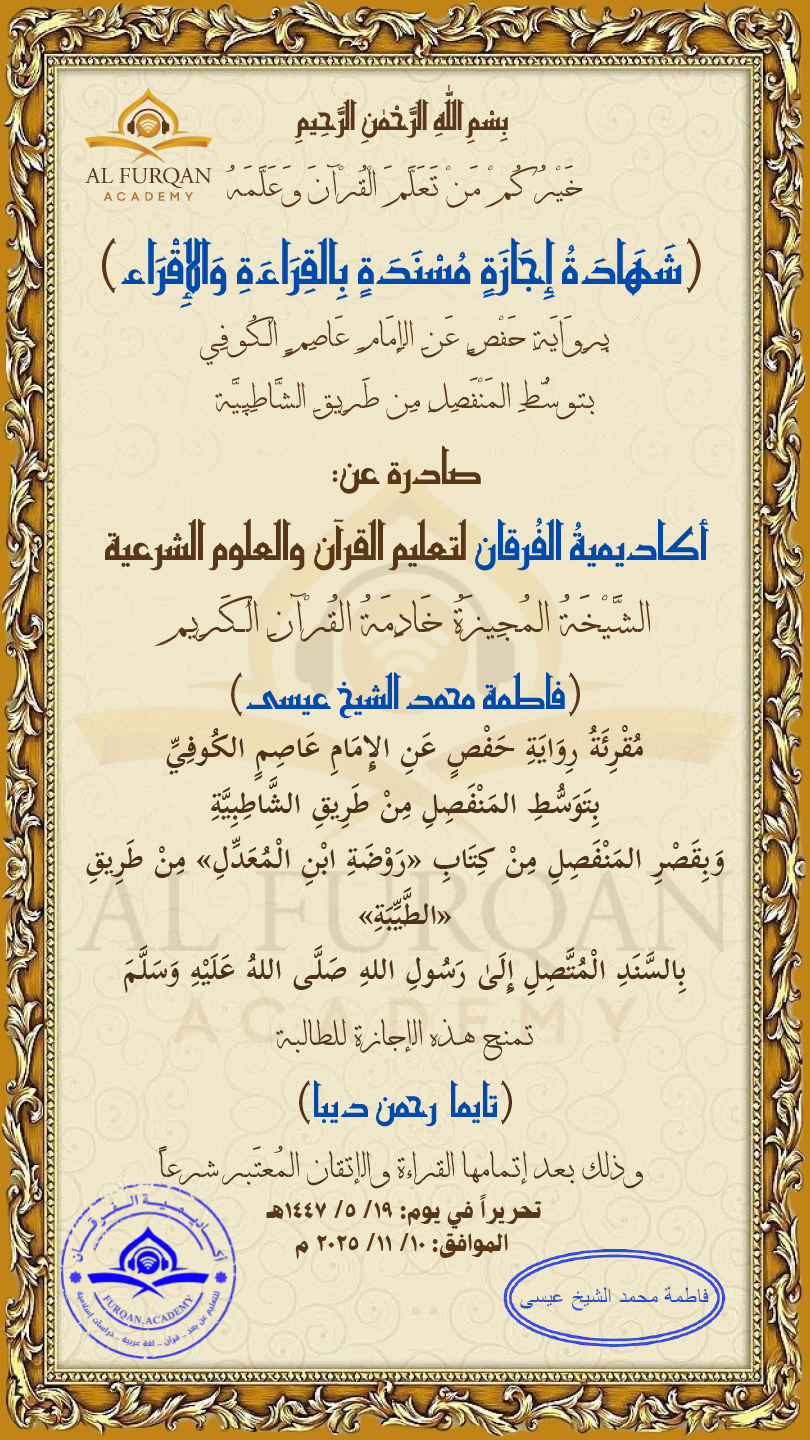 بِسْمِ اللَّهِ الرَّحْمَٰنِ الرَّحِيمِ
AL FURQAN
ACADEMY
خَيْرُكُمْ مَنْ تَعَلَّمَ الْقُرْآنَ وَعَلَّمَهُ
(شَهَادَةُ إِجَازَةٍ مُسْنَدَةٍ بِالقِرَاءَةِ وَالإِقْرَاء)
بِروَايَةِ حَفْصٍ عَنِ الإِمَامِ عَاصِمٍ الْكُوفِي
بتوسُّطِ المَنْفَصِلِ مِن طَرِيقِ الشَّاطِبِيَّة
صادرة عن:
أكاديميةُ الفُرقان لتعليم القرآن والعلوم الشرعية
الشَّيْخَةُ المُجِيزَةُ خَادِمَةُ القُرْآنِ الْكَرِيم
(فاطمة محمد الشيخ عيسى)
مُقْرِئَةُ رِوَايَةِ حَفْصٍ عَنِ الإِمَامِ عَاصِمٍ الكُوفِيِّ
بِتَوَسُّطِ المَنْفَصِلِ مِنْ طَرِيقِ الشَّاطِبِيَّةِ
وَبِقَصْرِ المَنْفَصِلِ مِنْ كِتَابِ «رَوْضَةِ ابْنِ الْمُعَدِّلِ» مِنْ طَرِيقِ
«الطَّيِّبَةِ»
بِالسَّنَدِ الْمُتَّصِلِ إِلَىٰ رَسُولِ اللهِ صَلَّى اللهُ عَلَيْهِ وَسَلَّمَ
تمنح هذه الإجازة للطالبة
(تايما رحمن ديبا)
وذلك بعد إتمامها القراءة والإتقان المُعتَبر شرعاً
تحريراً في يوم: ١٩/ ٥/ ١٤٤٧هـ
الموافق: ١٠/ ١١/ ٢٠٢٥ م
أكاديمية الفرقان
FURQAN.ACADEMY
للتعليم عن بعد .. قرآن .. لغة عربية .. دراسات إسلامية
فاطمة محمد الشيخ عيسى
AL FURQAN
ACADEMY